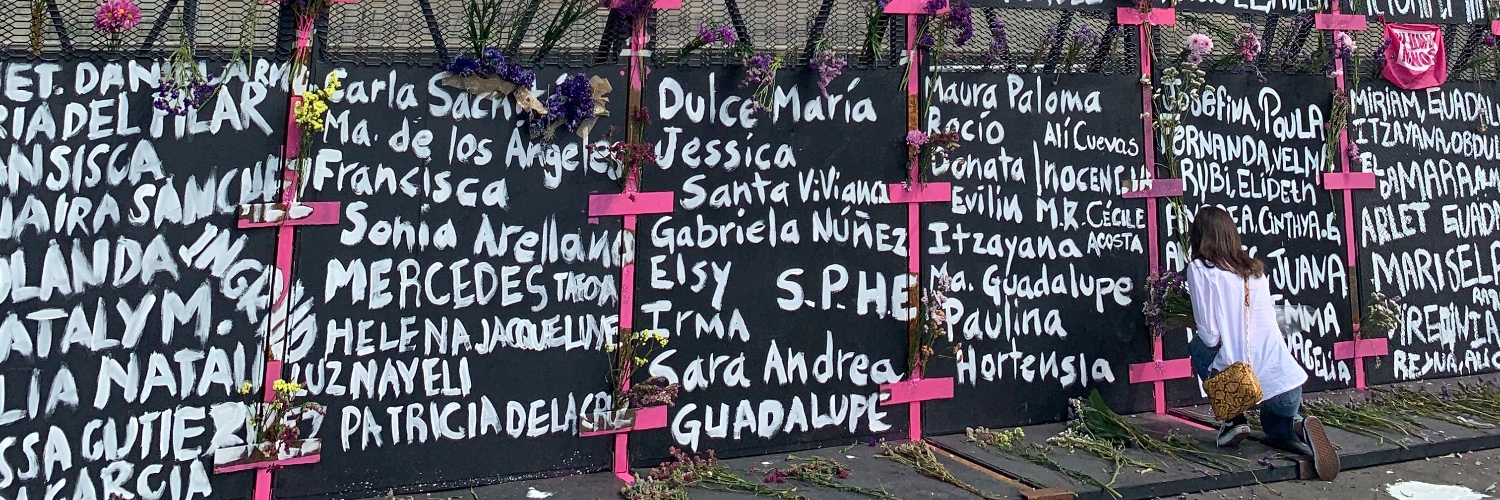 ET. DAN
RIA DEL PILAR
ANSISCA
SANCH
OLANDA
NATALY M.
LIA NATALI
SSA GUTIE
GARCIA
Carla
Ma. de los Angeles
Francisca
Sonia Arellano
MERCEDES
HELENA JACQUELINE
LUZ NAYELI
PATRICIA DE LA CRUZ
Dulce María
Jessica
Santa ViViana
Gabriela Núñez
Elsy S.P.HE
IrMA
Sara Andrea
GUADALUPE
Maura Paloma
Rocío Alí Cuevas
Donata Inocencia
Eviliu M.R. CÉCILE
ACOSTA
Itzayana
Ma. Guadalupe
Paulina
Hortensia
Josefina, Paula
FERNANDA, VELN
RUBI, ELideth
CINTHYA.G
JUANA
EMMA
MIRIAM, GUADAL
ITZAYANA, OBDUL
DAMARA,
ARLET GUADA
MARISELA
REYNA, ALIC